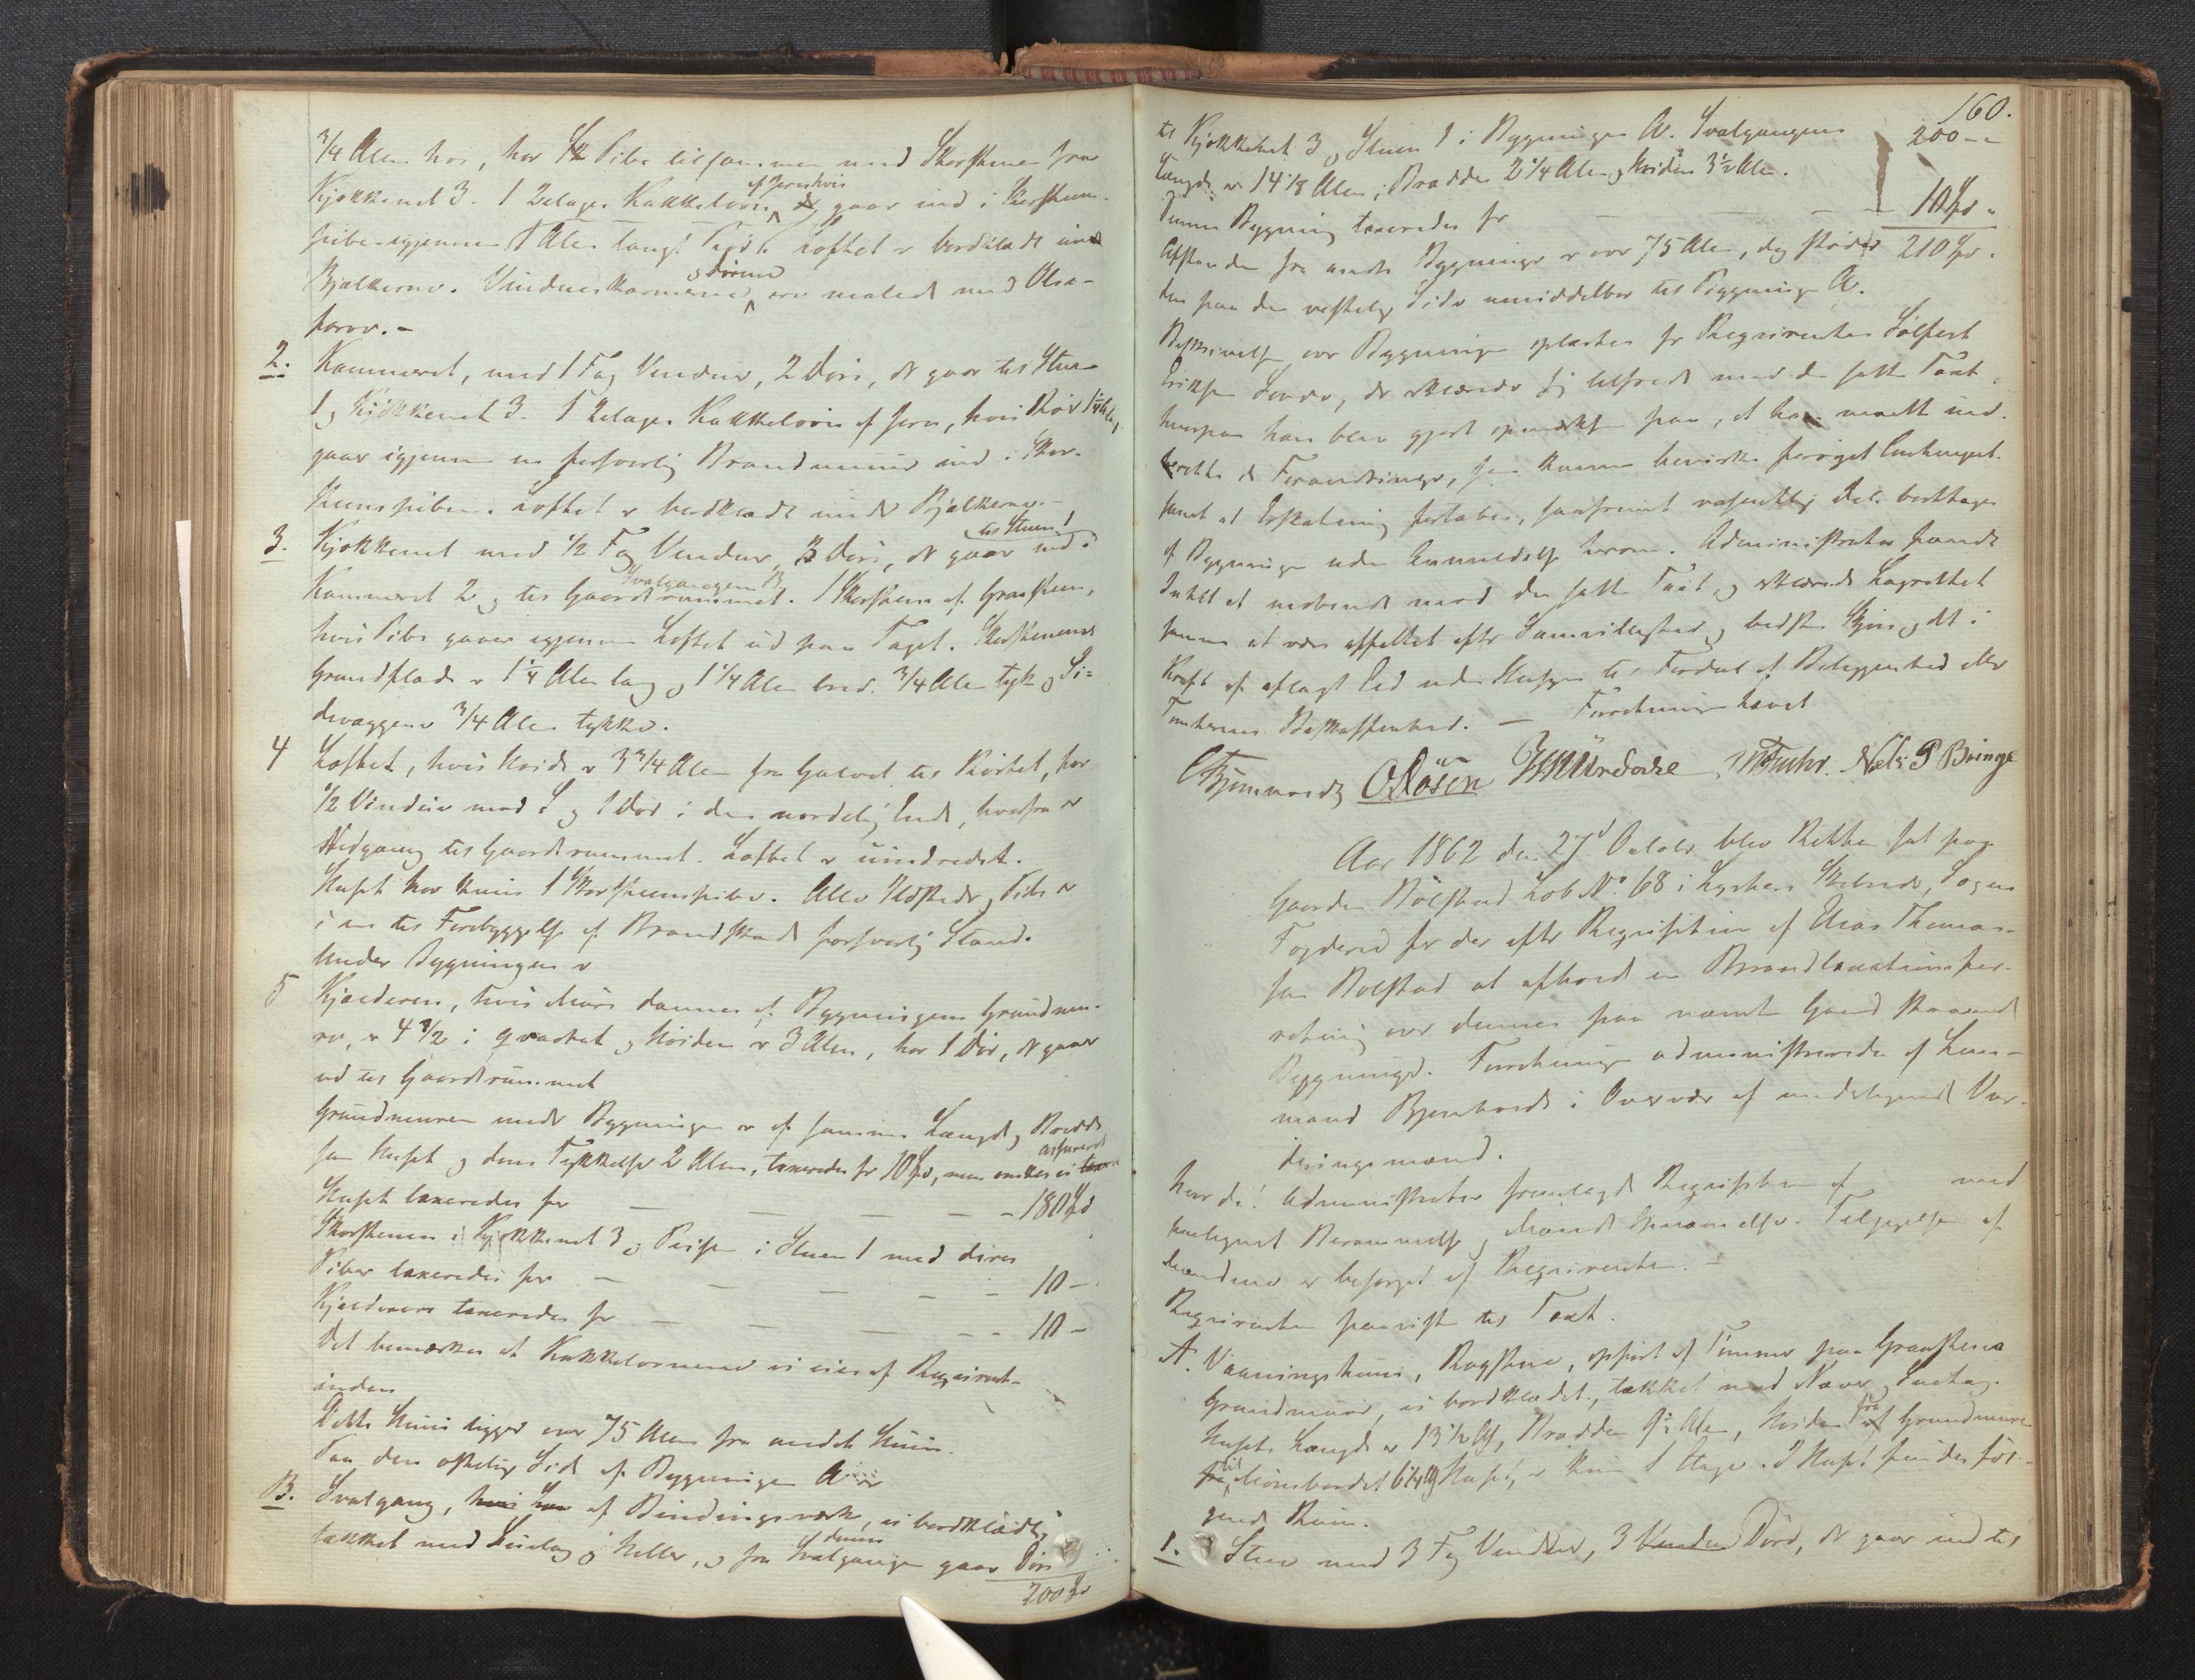 3/4 Alen høi, har sin Pibe tilsammen med Skorstenen fra
Kjøkkenet 3. 1 2etages Kakkelovn af Jern, hvis Rør gaar ind i Skorsteens-
piben igjennem 1 Alen langt Rør. Loftet er bordklædt under
Bjælkerne. Vindueskarmene og Dørene ere malede med Olie-
farve. -
2. Kammeret, med 1 Fag Vinduer, 2 Døre, der gaar til Stuen
1 og Kjøkkenet 3. 1 2etages Kakkelovn af Jern, hvis Rør 1 1/4 Al. lang,
gaar igjennem en forsvarlig Brandmuur ind i Skor-
steenspiben. Loftet er bordklædt under Bjælkerne. -
3. Kjøkkenet med 1/2 Fag Vinduer, 3 Døre, der gaar til Stuen 1, ind i
Kammeret 2 og til Svalgangen B. 1 Skorsteen af Graasteen,
hvis Pibe gaaer igjennem Loftet ud paa Taget. Skorstenens
Grundflade er 1 1/4 Alen lang og 1 1/4 Alen bred. 3/4 Alen tyk og Si-
devæggene 3/4 Alen tykke.
4 Loftet, hvis Høide er 3 3/4 Alen fra Gulvet til Røstet, har
1/2 Vindue med 2 og 1 Dør i den nordelige Ende, hvorfra er
Nedgang til Gaardsrummet. Loftet er uindredet.
Huset har kuns 1 Skorsteenspibe. Alle Ildsteder og Piber er
i en til Forebyggelse af Brandskade forsvarlig Stand.
Under Bygningen er
5 Kjælderen, hvis Mure dannes af Bygningens Grundmu-
re, er 4 1/2 i qvadrat og Høiden er 3 Alen, har 1 Dør, der gaar
ud til Gaardsrummet
Grundmuren under Bygningen er af samme Længde og Bredde
som Huset og dens Tykkelse 2 Alen, taxeredes for 10 Spd, men ønskes ei assureret
Huset taxeredes for — — — — 180 Spd
Skorstenen i Kjøkkenet 3 og Peisen i Stuen 1 med deres
Piber taxeredes for — — — — 10 -
Kjælderen taxeredes for — — — — 10 -
Det bemærkes at Kakkelovnene ei eies af Reqvirent-
inden
Dette Huus ligger over 75 Alen fra andet Huus.
Paa den østelige Side af Bygningen A er
B. Svalgang, af Bindingsværk, ei bordklædt,
tækket med Steenlag og Heller, og fra denne Svalgange gaar Døre
200 Spd
160.
til Kjøkkenet 3 og Stuen 1 i Bygningen A. Svalgangens 200 --
Længde er 14 1/8 Alen, Bredde 2 1/4 Alen og Høiden 3 1/2 Alen.
Denne Bygning taxeredes for — — — 10 Spd "
Afstanden fra andre Bygninger er over 75 Alen, dog støder 210 Spd.
den paa den vestelige Side umiddelbar til Bygningen A.
Beskrivelsen over Bygningen oplæstes for Reqvirenten Sølfest
Eriksen, der erklærede sig tilfreds med den satte Taxt,
hvorpaa han blev gjort opmærksom paa, at han maatte ind-
berette de Forandringer, som kunne bevirke forøget Contingent
samt at Erstatning fortabes, saafremt væsentlig Del borttages
af Bygningen uden Anmeldelse herom. Administrator fandt
Intet at indvende mod den satte Taxt, og erklærede Lagrettet
samme at være affattet efter Samvittighed og bedste Skjøn og det i
Kraft af aflagt Eed uden Hensyn til Fordeel af Beliggenhed eller
Tomtens Beskaffenhed. — Forretningen hævet
O Røsen Nels P Bringe
Aar 1862 den 27d October blev Retten sat paa
Gaarden Bolstad Løb No. 68 i Skibrede, Sogns
Fogderi for der efter Reqvisition af Thomas-
sen Bolstad at afholde en Brandtaxationsfor-
retning over dennes paa nævnte Gaard staaende
Bygninger. Forretningen administreredes af Lens-
mand i Overvær af undertegnede Vur-
deringsmænd.
Hvorda! Administrator fremlagde Reqvisition af med
paategnet Berammelse og Mænds Opnævnelse. Tilsigelse af
Mændene er besørget af Reqvirenten. -
Reqvirenten paaviste til Taxt.
A. Vaaningshuus, Røgstue, opført af Tømmer paa Graasteens
Grundmuur, ei bordklædet, tækket med Næver og Steentag.
Husets Længde er 13 1/2 Al, Bredden 9 1/2 Alen, Høiden fra Grundmuren
til Mønsbordet 6 1/4 Al. Huset er kun 1 Etage. I Huset findes føl-
gende Rum.
1. Stue med 3 Fag Vinduer, 3 Døre, der gaar ind til